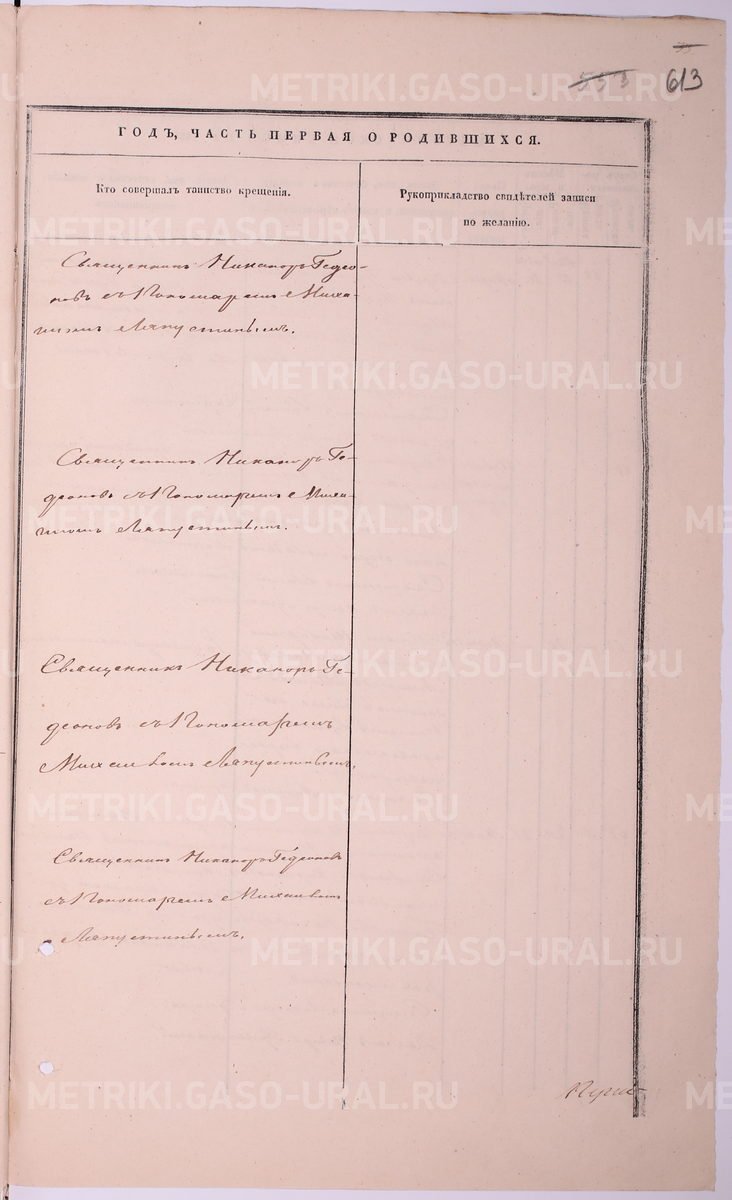 613
ГОДЪ, ЧАСТЬ ПЕРВАЯ О РОДИВШИХСЯ.
Кто совершалъ таинство крещенія.
Рукоприкладство свидѣтелей записи
по желанію.
Священникъ Никаноръ Гедео-
новъ съ Пономаремъ Миха-
иломъ Ляпустинымъ.
Священникъ Никаноръ Ге-
деоновъ съ Пономаремъ Миха-
иломъ Ляпустинымъ.
Священникъ Никаноръ Ге-
деоновъ съ Пономаремъ
Михаиломъ Ляпустинымъ.
Священникъ Никаноръ Гедеоновъ
съ Пономаремъ Михаиломъ
Ляпустинымъ.
METRIKI.GASO-URAL.RU